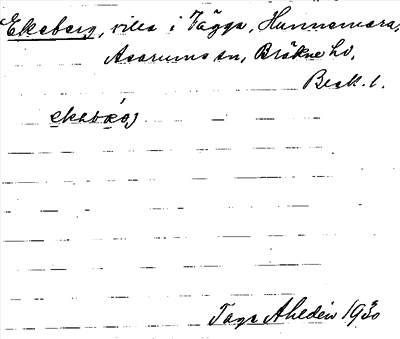 Ekeberg, villa i Tägga, Hunnemara,
Asarums sn, Bräkne hd,
Blek. l.
Tage Ahldén 1930